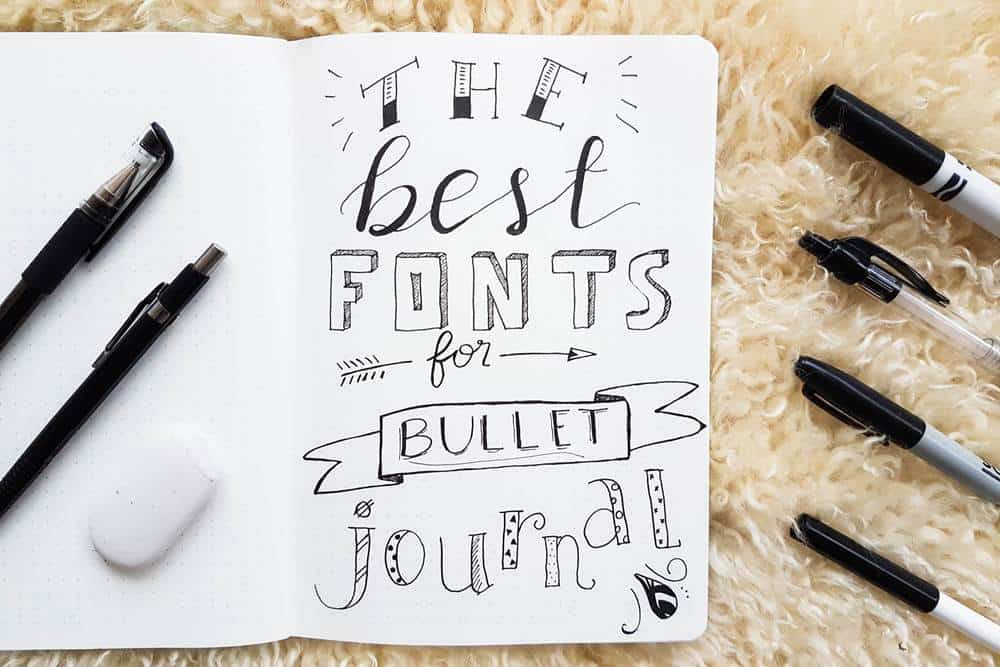 THE
best
FONTS
for
BULLET
journal